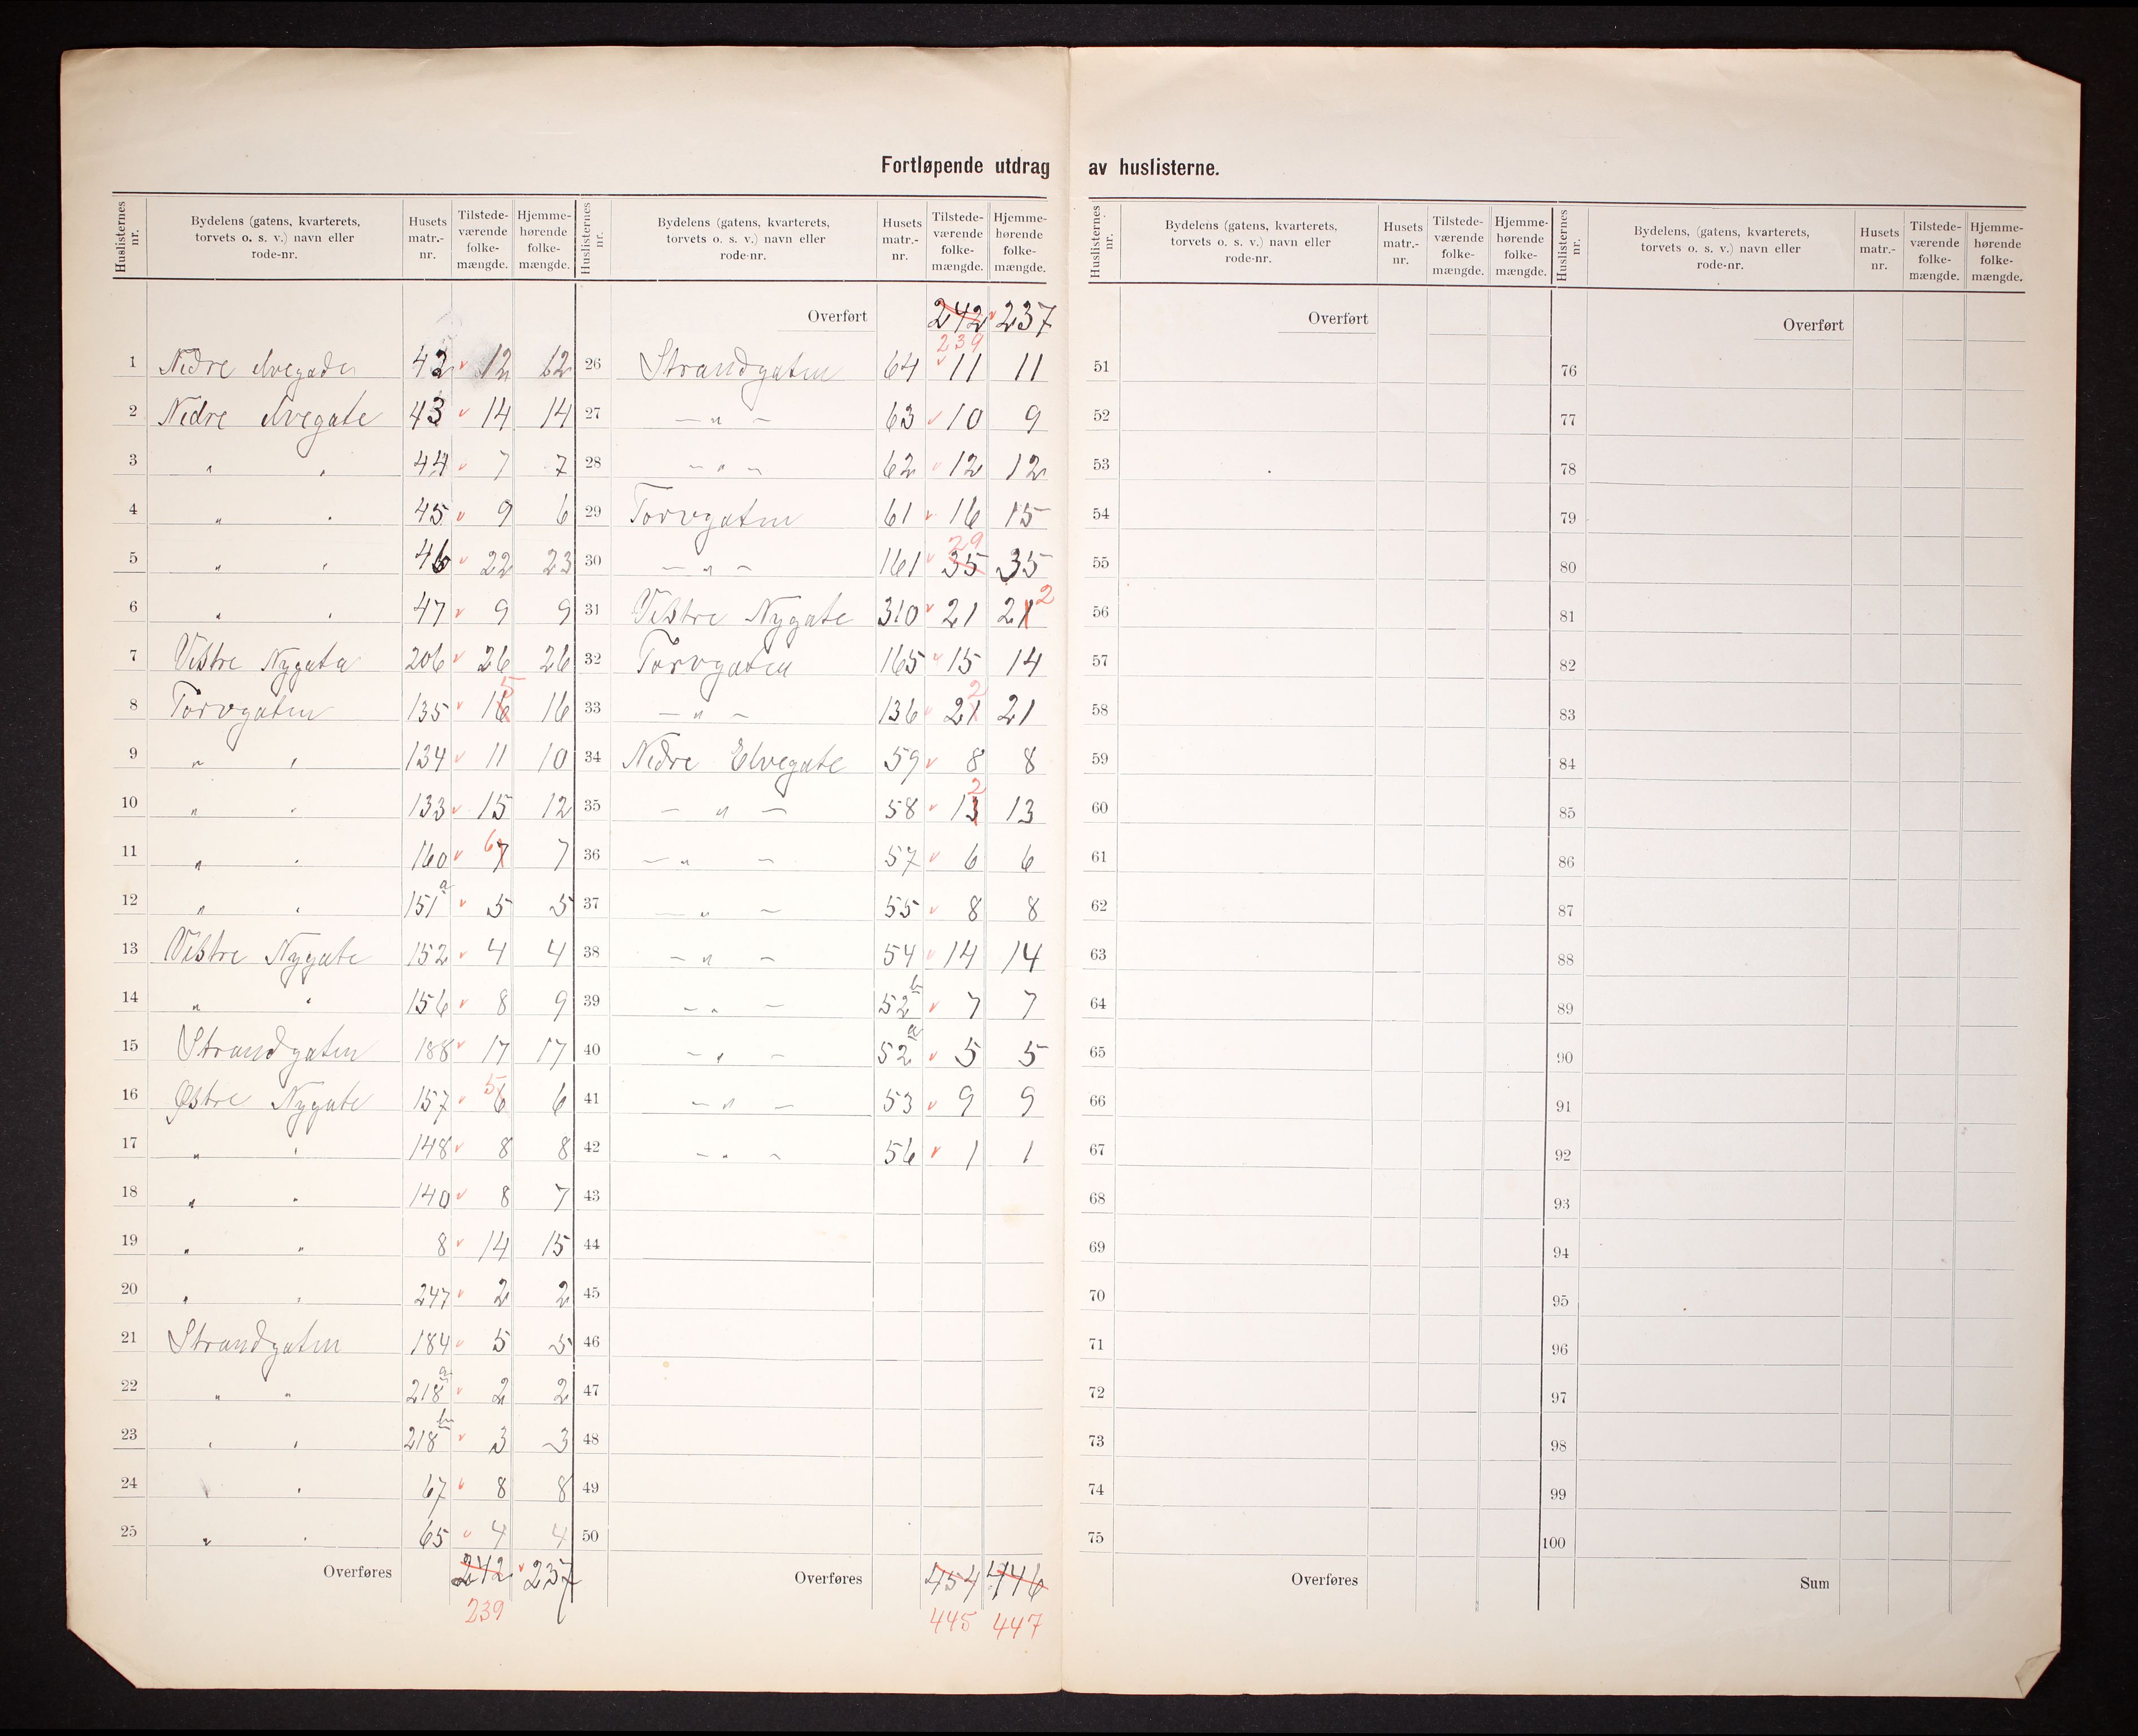 Fortløpende utdrag av huslisterne.
Huslisternes nr. Bydelens (gatens, kvarterets, torvets o. s. v.) navn eller rode-nr. Husets matr.-nr. Tilstede-værende folke-mængde. Hjemme-hørende folke-mængde.
1 Nedre elvegade 42 v 12 12
2 Nedre elvegate 43 v 14 14
3 " " 44 v 7 7
4 " " 45 v 9 6
5 " " 46 v 22 23
6 " " 47 v 9 9
7 Vestre Nygata 206 v 26 26
8 Torvgaten 135 v 16 5 16
9 " " 134 v 11 10
10 " " 133 v 15 12
11 " " 160 v 6 7 7
12 " " 151a v 5 5
13 Vestre Nygate 152 v 4 4
14 " " 156 v 8 9
15 Strandgaten 188 v 17 17
16 Østre Nygate 157 v 5 6 6
17 " " 148 v 8 8
18 " " 140 v 8 7
19 " " 8 v 14 15
20 " " 247 v 2 2
21 Strandgaten 184 v 5 5
22 " " 218a v 2 2
23 " " 218b v 3 3
24 " " 67 v 8 8
25 " " 65 v 4 4
Overføres 242 v 237
239
Huslisternes nr. Bydelens (gatens, kvarterets, torvets o. s. v.) navn eller rode-nr. Husets matr.-nr. Tilstede-værende folke-mængde. Hjemme-hørende folke-mængde.
Overført 242 v 237
239
26 Strandgaten 64 v 11 11
27 — " — 63 v 10 9
28 — " — 62 v 12 12
29 Torvgaten 61 v 16 15
30 — " — 161 v 29 35 35
31 Vestre Nygate 310 v 21 21 2
32 Torvgaten 165 v 15 14
33 — " — 136 v 21 2 21
34 Nedre Elvegate 59 v 8 8
35 — " — 58 v 13 2 13
36 — " — 57 v 6 6
37 — " — 55 v 8 8
38 — " — 54 v 14 14
39 — " — 52b v 7 7
40 — " — 52a v 5 5
41 — " — 53 v 9 9
42 — " — 56 v 1 1
43
44
45
46
47
48
49
50
Overføres 454 446
445 447
Huslisternes nr. Bydelens (gatens, kvarterets, torvets o. s. v.) navn eller rode-nr. Husets matr.-nr. Tilstede-værende folke-mængde. Hjemme-hørende folke-mængde.
Overført
51
52
53
54
55
56
57
58
59
60
61
62
63
64
65
66
67
68
69
70
71
72
73
74
75
Overføres
Huslisternes nr. Bydelens, (gatens, kvarterets, torvets o. s. v.) navn eller rode-nr. Husets matr.-nr. Tilstede-værende folke-mængde. Hjemme-hørende folke-mængde.
Overført
76
77
78
79
80
81
82
83
84
85
86
87
88
89
90
91
92
93
94
95
96
97
98
99
100
Sum